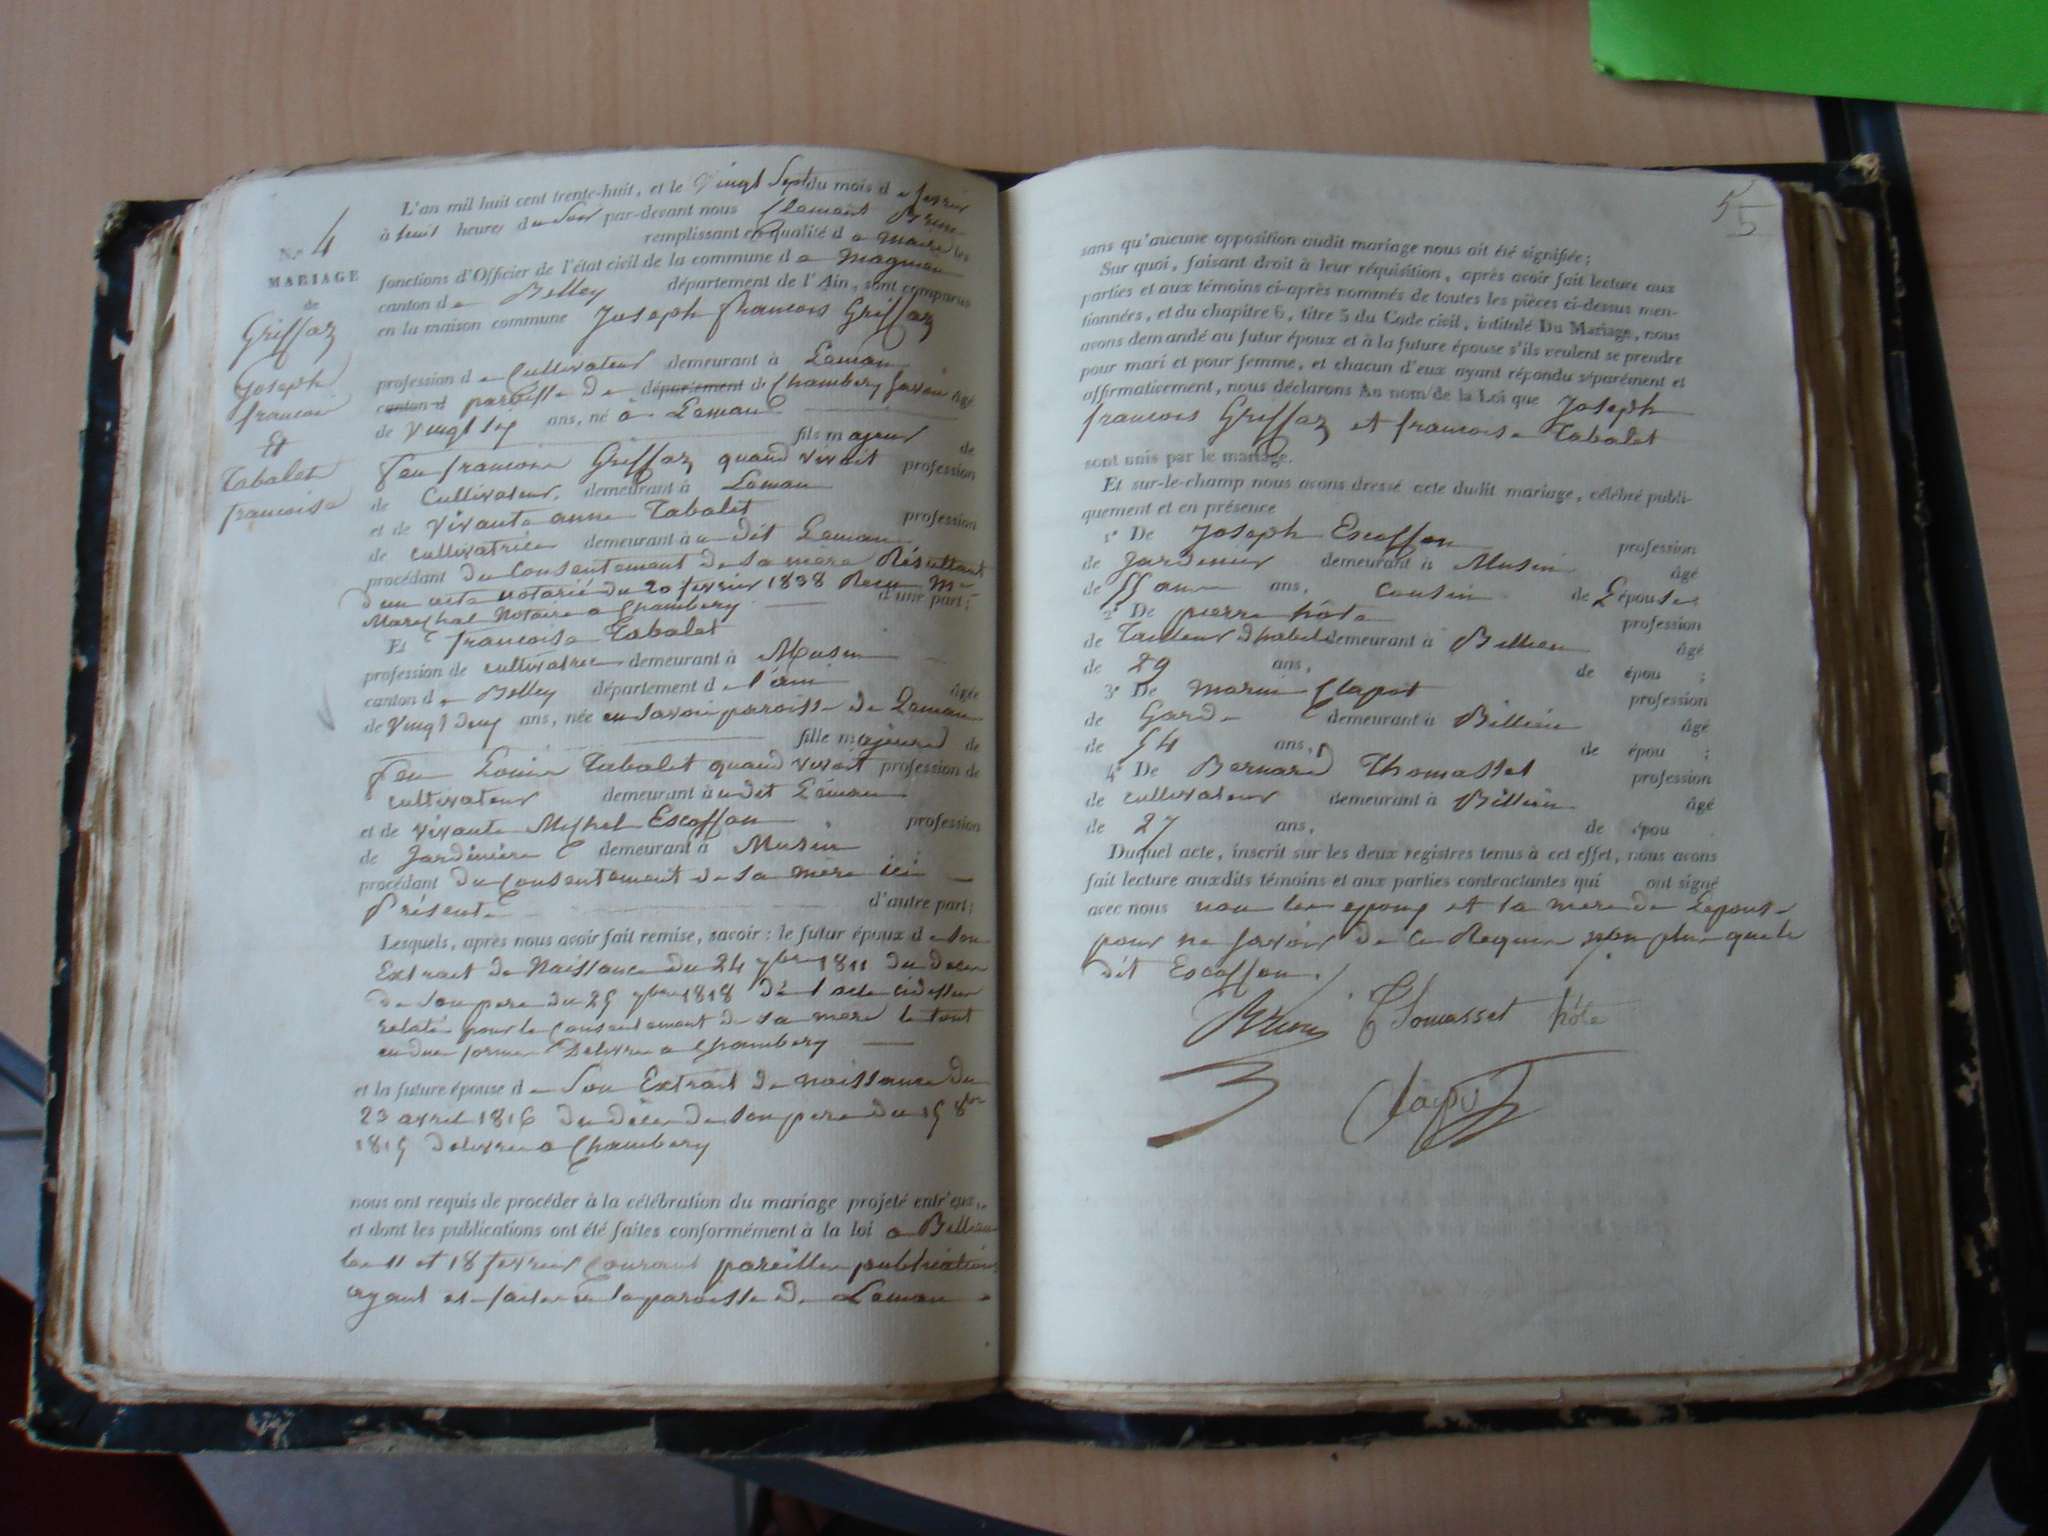 N.º 4
MARIAGE
de
Griffaz
Joseph
francois
Et
Tabalet
francoise
L'an mil huit cent trente-huit, et le Vingt Sept du mois de fevrier
à huit heures du Soir par-devant nous Clement Brun
remplissant en qualité de Maire les
fonctions d'Officier de l'état civil de la commune de Magnieu
canton de Belley département de l'Ain, sont comparus
en la maison commune Joseph francois Griffaz
profession de Cultivateur demeurant à Leman
canton d paroisse de département de Chambery Savoie âgé
de Vingt six ans, né à Leman
fils majeur de
feu francois Griffaz quand vivait profession
de Cultivateur, demeurant à Leman
et de vivante anne Tabalet profession
de cultivatrice demeurant à u dit Leman
procédant du Consentement de sa mere Résultant
d'un acte notarié du 20 fevrier 1838 Recu Me
Marechal Notaire a Chambery d'une part;
Et francoise Tabalet
profession de cultivatrice demeurant à Musin
canton de Belley département de l'ain âgée
de Vingt deux ans, née en Savoie paroisse de Leman
fille majeure de
feu Louis Tabalet quand vivait profession de
cultivateur demeurant à udit Leman
et de vivante Michel Escoffon profession
de Jardinière demeurant à Musin
procédant du Consentement de sa mere ici
Présente d'autre part;
Lesquels, après nous avoir fait remise, savoir : le futur époux de son
Extrait de Naissance du 24 7bre 1811 du deces
de son pere du 25 7bre 1818 de l'acte cidessus
relaté pour le Consentement de sa mere le tout
en due forme Delivre a Chambery
et la future épouse de Son Extrait de naissance du
23 avril 1816 du déces de son pere du 15 8bre
1815 Delivre a Chambery
nous ont requis de procéder à la célébration du mariage projeté entr'eux,
et dont les publications ont été faites conformément à la loi a Billieu
les 11 et 18 fevrier Courant pareilles publications
ayant ete faites a la paroisse de Leman
5
5
sans qu'aucune opposition audit mariage nous ait été signifiée;
Sur quoi, faisant droit à leur réquisition, après avoir fait lecture aux
parties et aux témoins ci-après nommés de toutes les pièces ci-dessus men-
tionnées, et du chapitre 6, titre 5 du Code civil, intitulé Du Mariage, nous
avons demandé au futur époux et à la future épouse s'ils veulent se prendre
pour mari et pour femme, et chacun d'eux ayant répondu séparément et
affirmativement, nous déclarons Au nom de la Loi que Joseph
francois Griffaz et francoise Tabalet
sont unis par le mariage.
Et sur-le-champ nous avons dressé acte dudit mariage, célébré publi-
quement et en présence
1º De Joseph Escoffon profession
de Jardinier demeurant à Musin âgé
de 55 ans ans, cousin de Lépouse
2º De pierre hôte profession
de Tailleur dhabits demeurant à Billieu âgé
de 29 ans, de épou ;
3º De Marin Clapot profession
de Garde demeurant à Billieu âgé
de 54 ans, de épou ;
4º De Bernard Thomasset profession
de cultivateur demeurant à Billieu âgé
de 27 ans, de épou .
Duquel acte, inscrit sur les deux registres tenus à cet effet, nous avons
fait lecture auxdits témoins et aux parties contractantes qui ont signé
avec nous non les epoux et la mere de Lepouse
pour ne savoir de ce Requis non plus que le
dit Escoffon.
Brun Thomasset hôte
Clapot